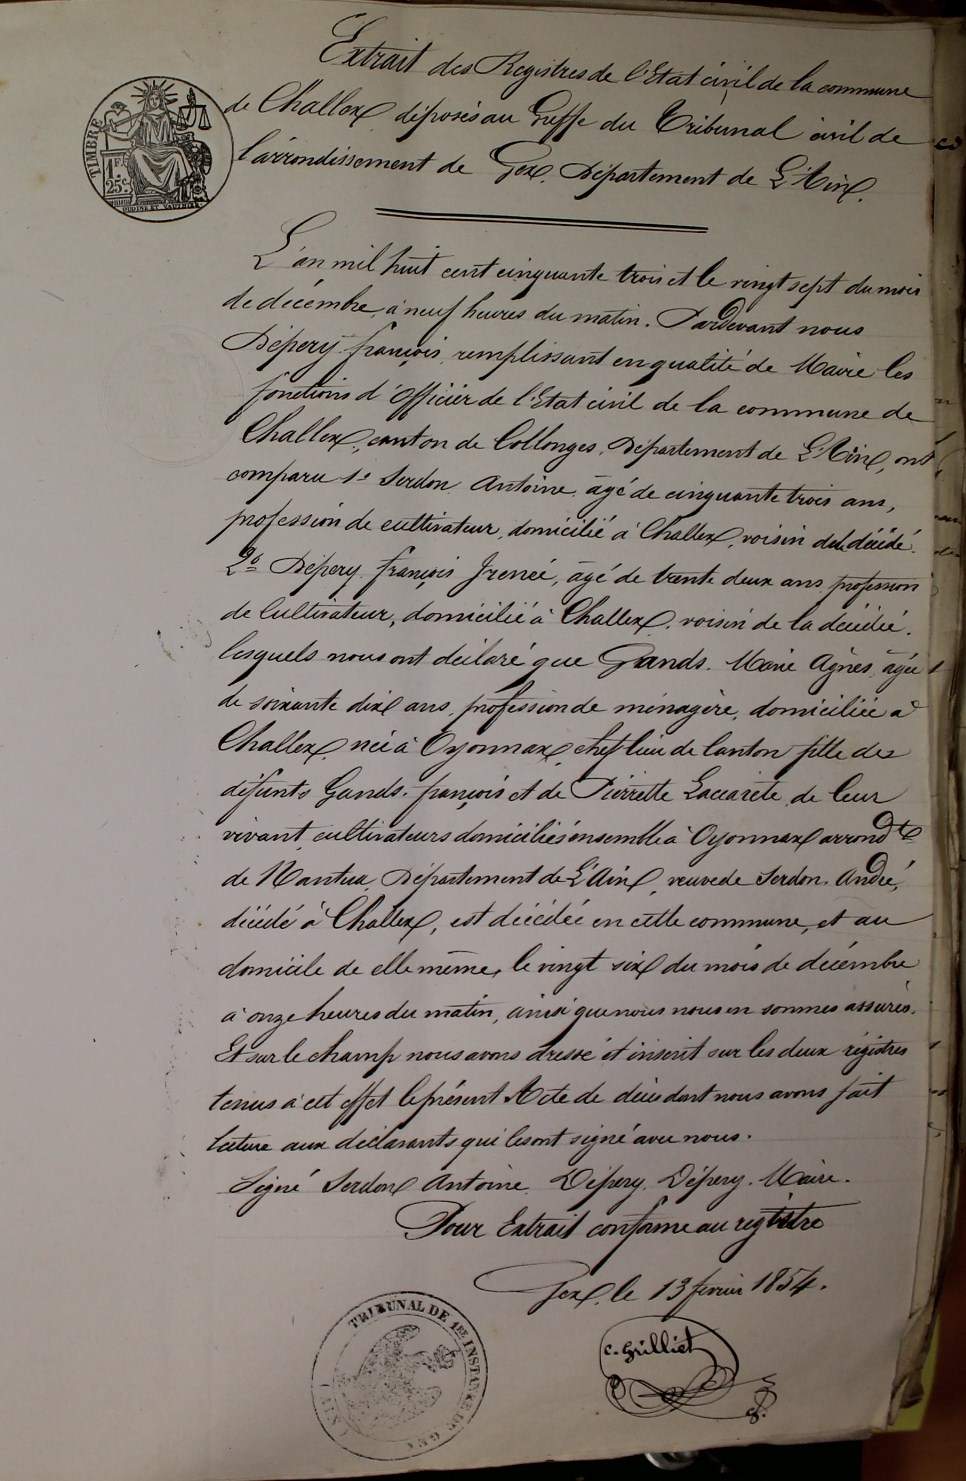 Extrait des Registres de l'Etat civil de la commune
de Challex, déposés au Greffe du Tribunal civil de
l'arrondissement de Gex. Département de L'Ain.
TIMBRE
1 F.
25 c.
L'an mil huit cent cinquante trois et le vingt sept du mois
de décembre, à neuf heures du matin. Pardevant nous
Dépery françois remplissant en qualité de Maire les
fonctions d'Officier de l'Etat civil de la commune de
Challex, canton de Collonges, Département de L'Ain, ont
comparu 1º Serdon Antoine, âgé de cinquante trois ans,
profession de cultivateur, domicilié à Challex, voisin de la décédé.
2º Dépery françois Jrenée, âgé de trente deux ans profession
de Cultivateur, domicilié à Challex, voisin de la décédée.
lesquels nous ont déclaré que Gands. Marie Agnès, âgée
de soixante dix ans, profession de ménagère, domiciliée à
Challex, née à Oyonnax, chef lieu de Canton fille des
défunts Gands. françois et de Pierrette Laccarete de leur
vivant, cultivateurs domiciliés ensemble à Oyonnax arrond
de Nantua, Département de L'Ain, veuve de Serdon. André,
décédé à Challex, est décédée en cette commune, et au
domicile de elle même, le vingt six du mois de décembre
à onze heures du matin, ainsi que nous nous en sommes assurés.
Et sur le champ nous avons dressé et inscrit sur les deux régistres
tenus à cet effet le présent Acte de décès dont nous avons fait
lecture aux déclarants qui le sont signé avec nous.
Signé Serdon Antoine Dépery, Dépery. Maire.
Pour Extrait conforme au registre
Gex, le 13 fevrier 1854.
C. Grilliet
TRIBUNAL DE 1RE INSTANCE DE GEX
(AIN)